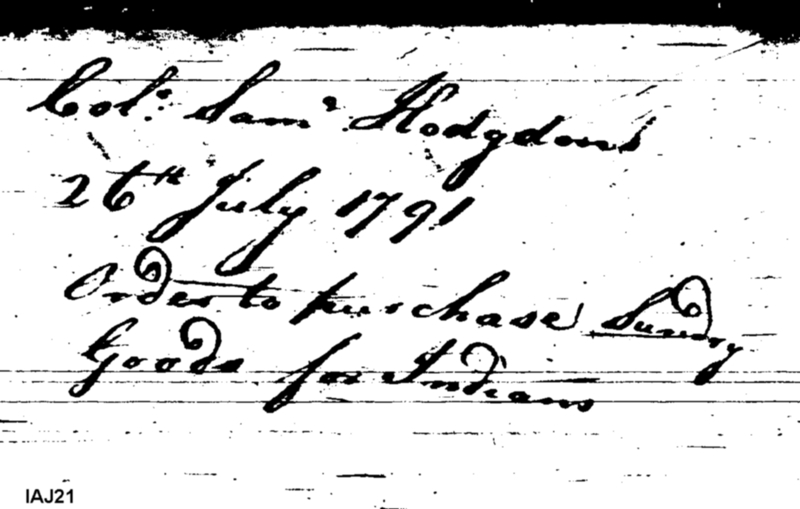 Colo. Saml. Hodgdons
26th July 1791
Order to purchase Sundry
Goods for Indians
IAJ21